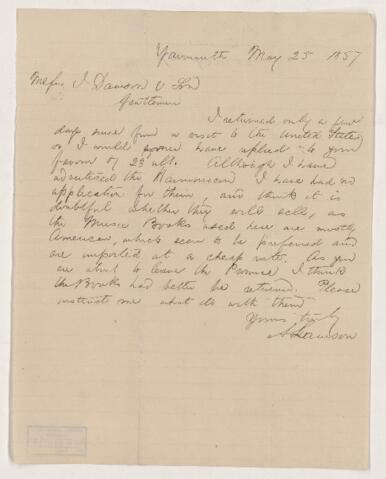 Yarmouth May 25 1857
Messrs J. Dawson & Son
Gentlemen
I returned only a few
days since from a visit to the United States
or I would sooner have replied to your
favour of 23 ult. Although I have
advertised the Harmonicon I have had no
application for them, and think it is
doubtful whether they will sell, as
the Music Books used here are mostly
American, which seem to be preferred and
are imported at a cheap rate. As you
are about to leave the Province I think
the Books had better be returned. Please
instruct me what do with them
Yours truly